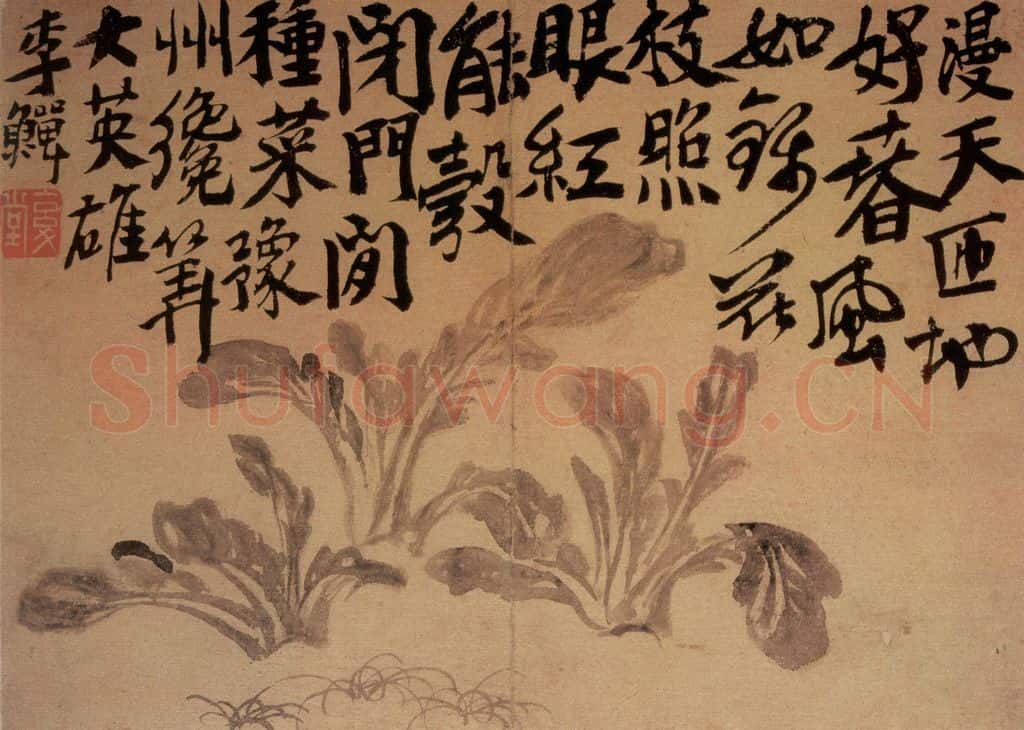 漫天匝地
好春風
如錦花
枝照
眼紅
能彀
閉門閒
種菜豫
州纔算
大英雄
李鱓
Shufawang.CN